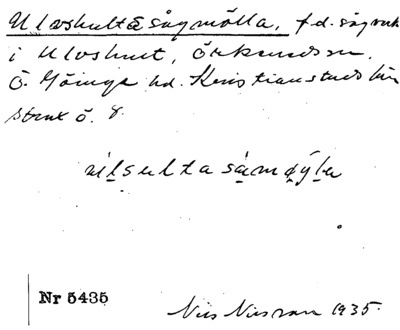 Ulvshulta sågmölla, f.d. sågverk
i Ulvshult, Örkeneds sn.
Ö. Göinge hd. Kristianstads län
strax ö. 8.
sulta
Nr 5435
Nils Nilsson 1935.